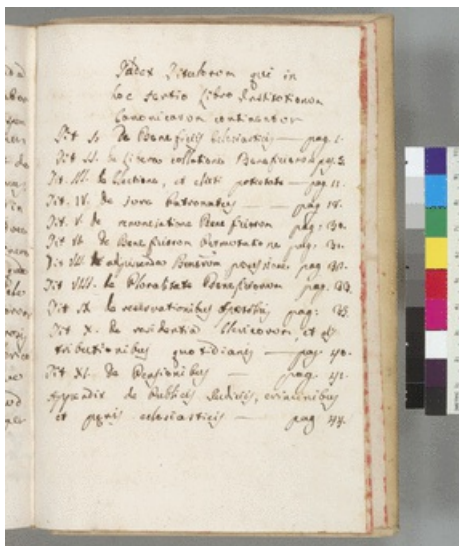 Index Titulorum qui in
hoc tertio Libro Institutionum
Canonicarum continentur
Tit. I. De Beneficijs Eclesiasticis — pag. 1.
Tit. II. de Libera collatione Beneficiorum pag.
Tit. III. de Electione, et electi potestate — pag. 11.
Tit. IV. de Jure Patronatus — pag. 18.
Tit. V. de renunciatione Beneficiorum pag: 30.
Tit. VI. de Beneficiorum Permutatione pag: 31.
Tit VII de adquirenda Beneficiorum possessione, pag.
Tit VIII. de Pluralitate Beneficiorum pag.
Tit IX. de reservationibus pag: 35.
Tit X. de residentia Clericorum, et dis
tributionibus quotidianis — pag. 40.
Tit XI. de Pensionibus — pag. 42.
Appendix de Publicis Judicijs, criminibus
et penis eclesiasticis — pag 44.